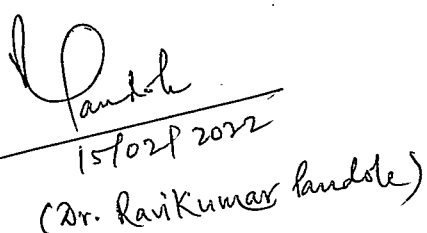 Pandole
15/02/2022
(Dr. RaviKumar Pandole)